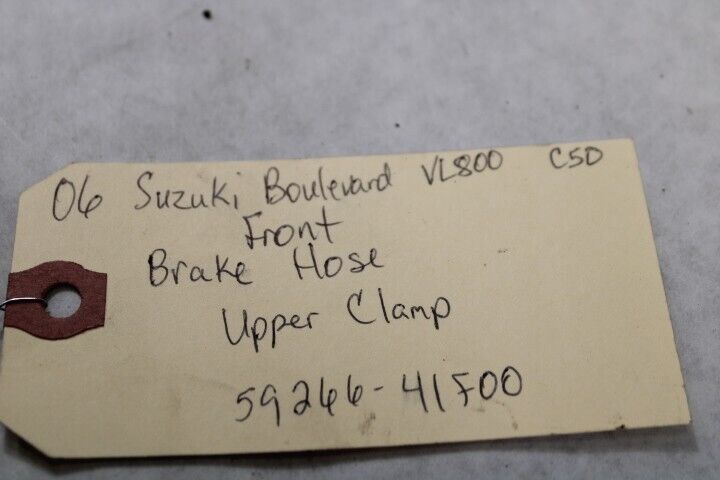 06 Suzuki Boulevard VL800 C50
Front
Brake Hose
Upper Clamp
59266-41F00